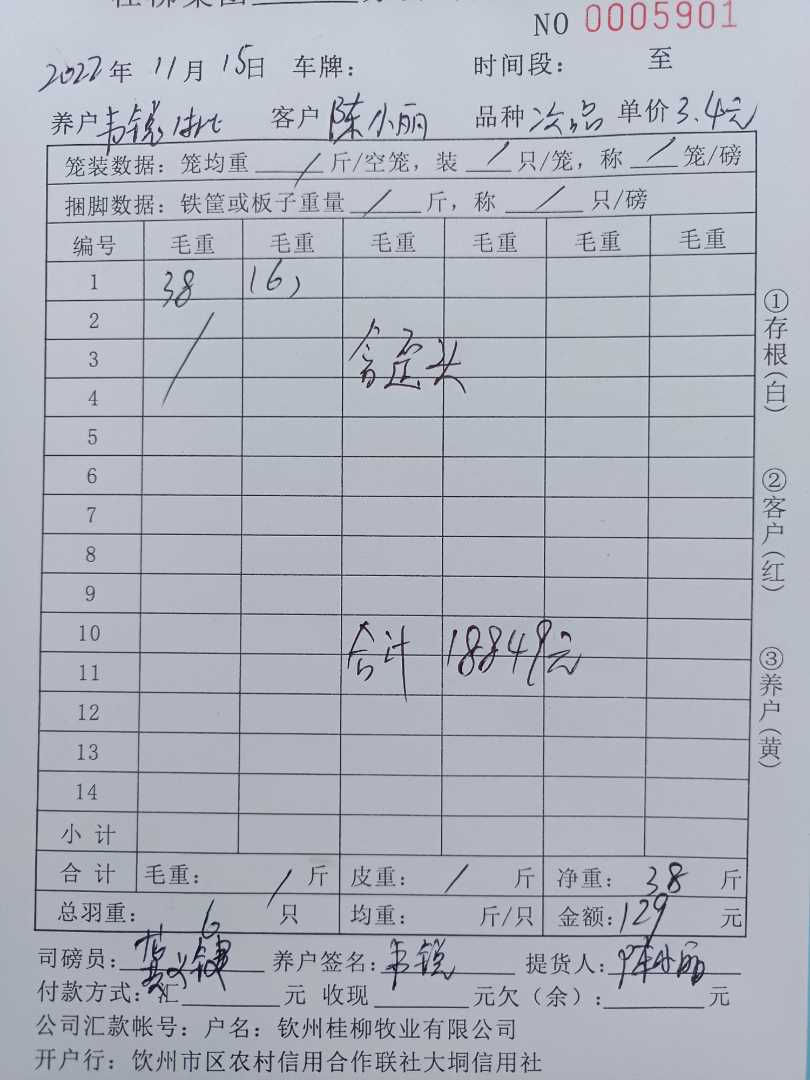 NO 0005901
2022年 11月 15日 车牌： 时间段： 至
养户 韦锐 客户 陈小丽 品种 次品 单价 3.4元
笼装数据：笼均重 / 斤/空笼，装 / 只/笼，称 / 笼/磅
捆脚数据：铁筐或板子重量 / 斤，称 / 只/磅
编号 毛重 毛重 毛重 毛重 毛重 毛重
1 38 (6)
2 /
3 含歪头
4
5
6
7
8
9
10 合计 18849元
11
12
13
14
小计
合计 毛重： / 斤 皮重： / 斤 净重： 38 斤
总羽重： 6 只 均重： 斤/只 金额：129 元
司磅员： 养户签名：韦锐 提货人：陈小丽
付款方式：汇 元 收现 元欠（余）： 元
公司汇款帐号：户名：钦州桂柳牧业有限公司
开户行：饮州市区农村信用合作联社大垌信用社
①存根(白)
②客户(红)
③养户(黄)